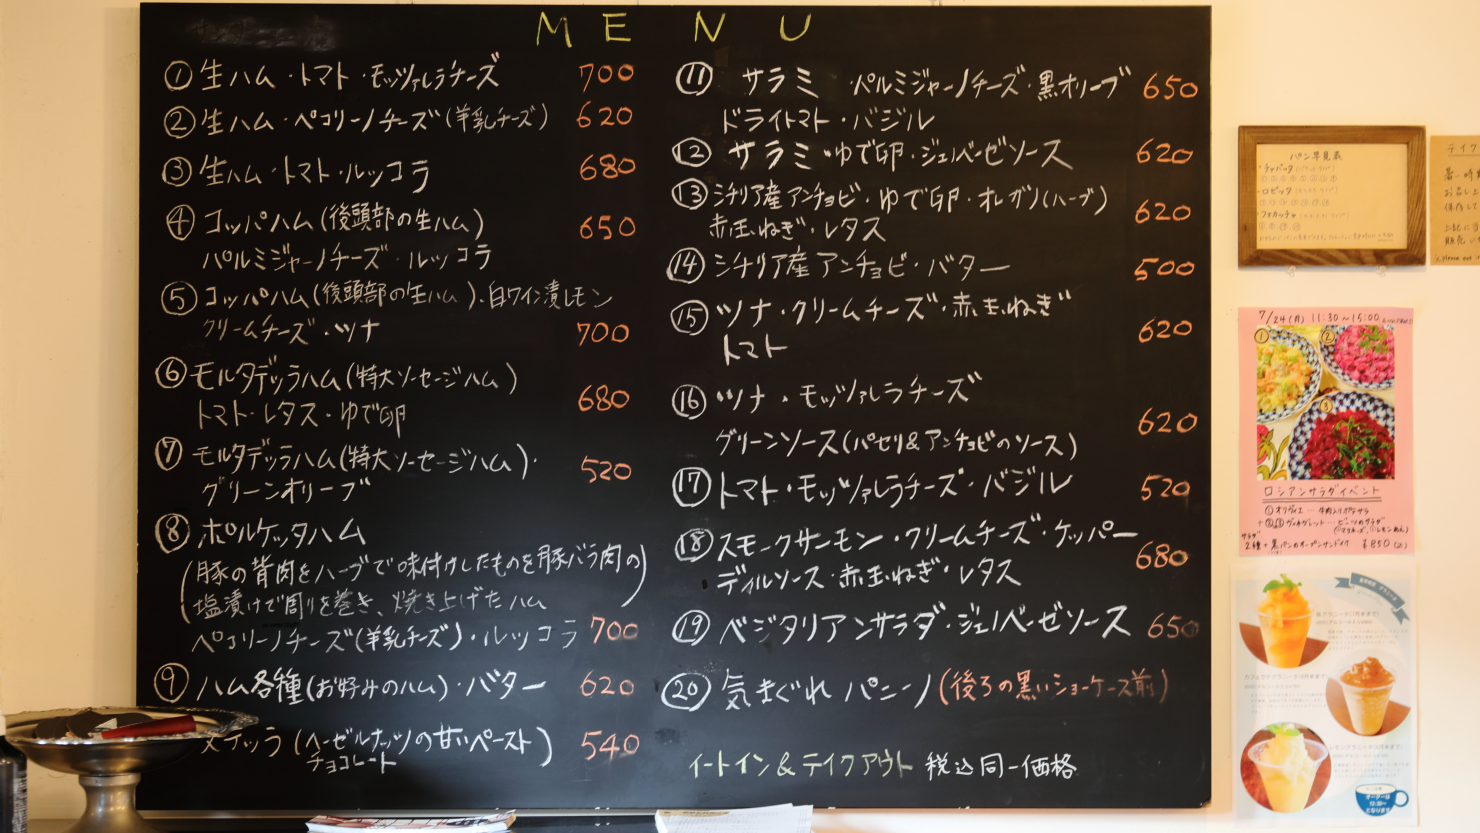 MENU
① 生ハム・トマト・モッツァレラチーズ 700
② 生ハム・ペコリーノチーズ(羊乳チーズ) 620
③ 生ハム・トマト・ルッコラ 680
④ コッパハム(後頭部の生ハム) 650
パルミジャーノチーズ・ルッコラ
⑤ コッパハム(後頭部の生ハム)、白ワイン漬レモン
クリームチーズ・ツナ 700
⑥ モルタデッラハム(特大ソーセージハム)
トマト・レタス・ゆで卵 680
⑦ モルタデッラハム(特大ソーセージハム)・
グリーンオリーブ 520
⑧ ポルケッタハム
(豚の背肉をハーブで味付けしたものを豚バラ肉の
塩漬けで周りを巻き、焼き上げたハム)
ペコリーノチーズ(羊乳チーズ)・ルッコラ 700
⑨ ハム各種(お好みのハム)・バター 620
ヌテッラ(ヘーゼルナッツの甘いペースト) 540
チョコレート
⑪ サラミ・パルミジャーノチーズ・黒オリーブ 650
ドライトマト・バジル
⑫ サラミ・ゆで卵・ジェノベーゼソース 620
⑬ シチリア産アンチョビ・ゆで卵・オレガノ(ハーブ)
赤玉ねぎ・レタス 620
⑭ シチリア産アンチョビ・バター 500
⑮ ツナ・クリームチーズ・赤玉ねぎ
トマト 620
⑯ ツナ・モッツァレラチーズ
グリーンソース(パセリ&アンチョビのソース) 620
⑰ トマト・モッツァレラチーズ・バジル 520
⑱ スモークサーモン・クリームチーズ・ケッパー
ディルソース・赤玉ねぎ・レタス 680
⑲ ベジタリアンサラダ・ジェノベーゼソース 650
⑳ 気まぐれパニーノ(後ろの黒いショーケース前)
イートイン&テイクアウト 税込同一価格
パン早見表
・チャバッタ
・ロゼッタ
・フォカッチャ
テイク
7/24(月) 11:30~15:00
①
②
③
ロシアンサラダイベント
① オリヴィエ
2種+黒パンのオープンサンドイク ¥850
オーダーは